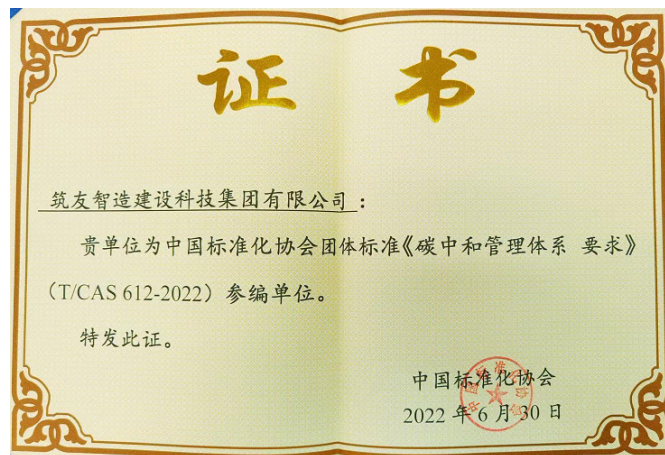 证 书
筑友智造建设科技集团有限公司：
贵单位为中国标准化协会团体标准《碳中和管理体系 要求》
（T/CAS 612-2022）参编单位。
特发此证。
中国标准化协会
2022 年 6 月 30 日
中国标准化协会